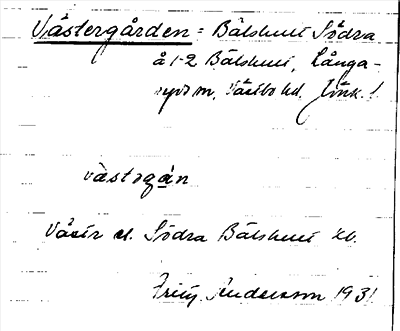 Västergården = Bälshult Södra
å 1-2 Bälshult, Långa-
ryds sn, Västbo hd. Jönk. l.
västəgạ̊n
Väster el. Södra Bälshult kb.
Fritz Andersson 1931